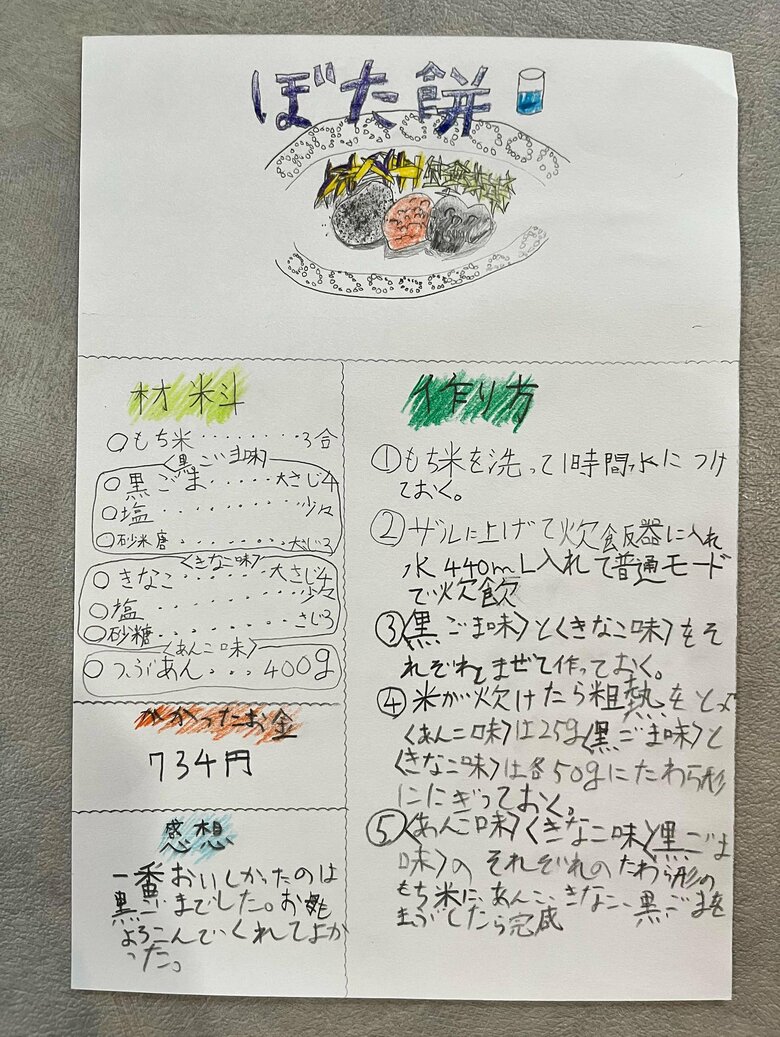 ぼた餅
材料
○もち米・・・・・・・3合
〈黒ごま味〉
○黒ごま・・・・・大さじ4
○塩・・・・・・・・少々
○砂糖・・・・・・大さじ3
〈きなこ味〉
○きなこ・・・・・大さじ4
○塩・・・・・・・・少々
○砂糖・・・・・・さじ3
〈あんこ味〉
○つぶあん・・・400g
かかったお金
734円
感想
一番おいしかったのは
黒ごまでした。お
よろこんでくれてよか
った。
作り方
①もち米を洗って1時間水につけ
ておく。
②ザルに上げて炊飯器に入れ
水440mL入れて普通モード
で炊飲
③〈黒ごま味〉と〈きなこ味〉をそ
れぞれまぜて作っておく。
④米が炊けたら粗熱をとって
〈あんこ味〉は25g〈黒ごま味〉と
〈きなこ味〉は各50gにたわら形
ににぎっておく。
⑤〈あんこ味〉〈きなこ味〉〈黒ごま
味〉のそれぞれのたわら形の
もち米に、あんこ、きなこ、黒ごまを
まぶしたら完成